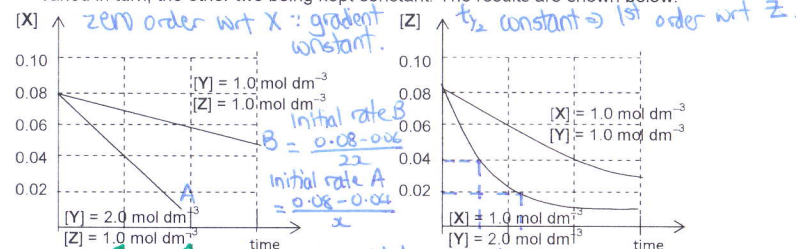 varied in turn, the other two being kept constant. The results are shown below.
[X]
zero order wrt X ∵ gradent
constant.
0.10
0.08
0.06
0.04
0.02
[Y] = 1.0 mol dm⁻³
[Z] = 1.0 mol dm⁻³
B
A
[Y] = 2.0 mol dm⁻³
[Z] = 1.0 mol dm⁻³
time
initial rate B
= 0.08-0.06
2x
initial rate A
= 0.08-0.04
x
[Z]
t1/2 constant ⇒ 1st order wrt Z.
0.10
0.08
0.06
0.04
0.02
[X] = 1.0 mol dm⁻³
[Y] = 1.0 mol dm⁻³
[X] = 1.0 mol dm⁻³
[Y] = 2.0 mol dm⁻³
time